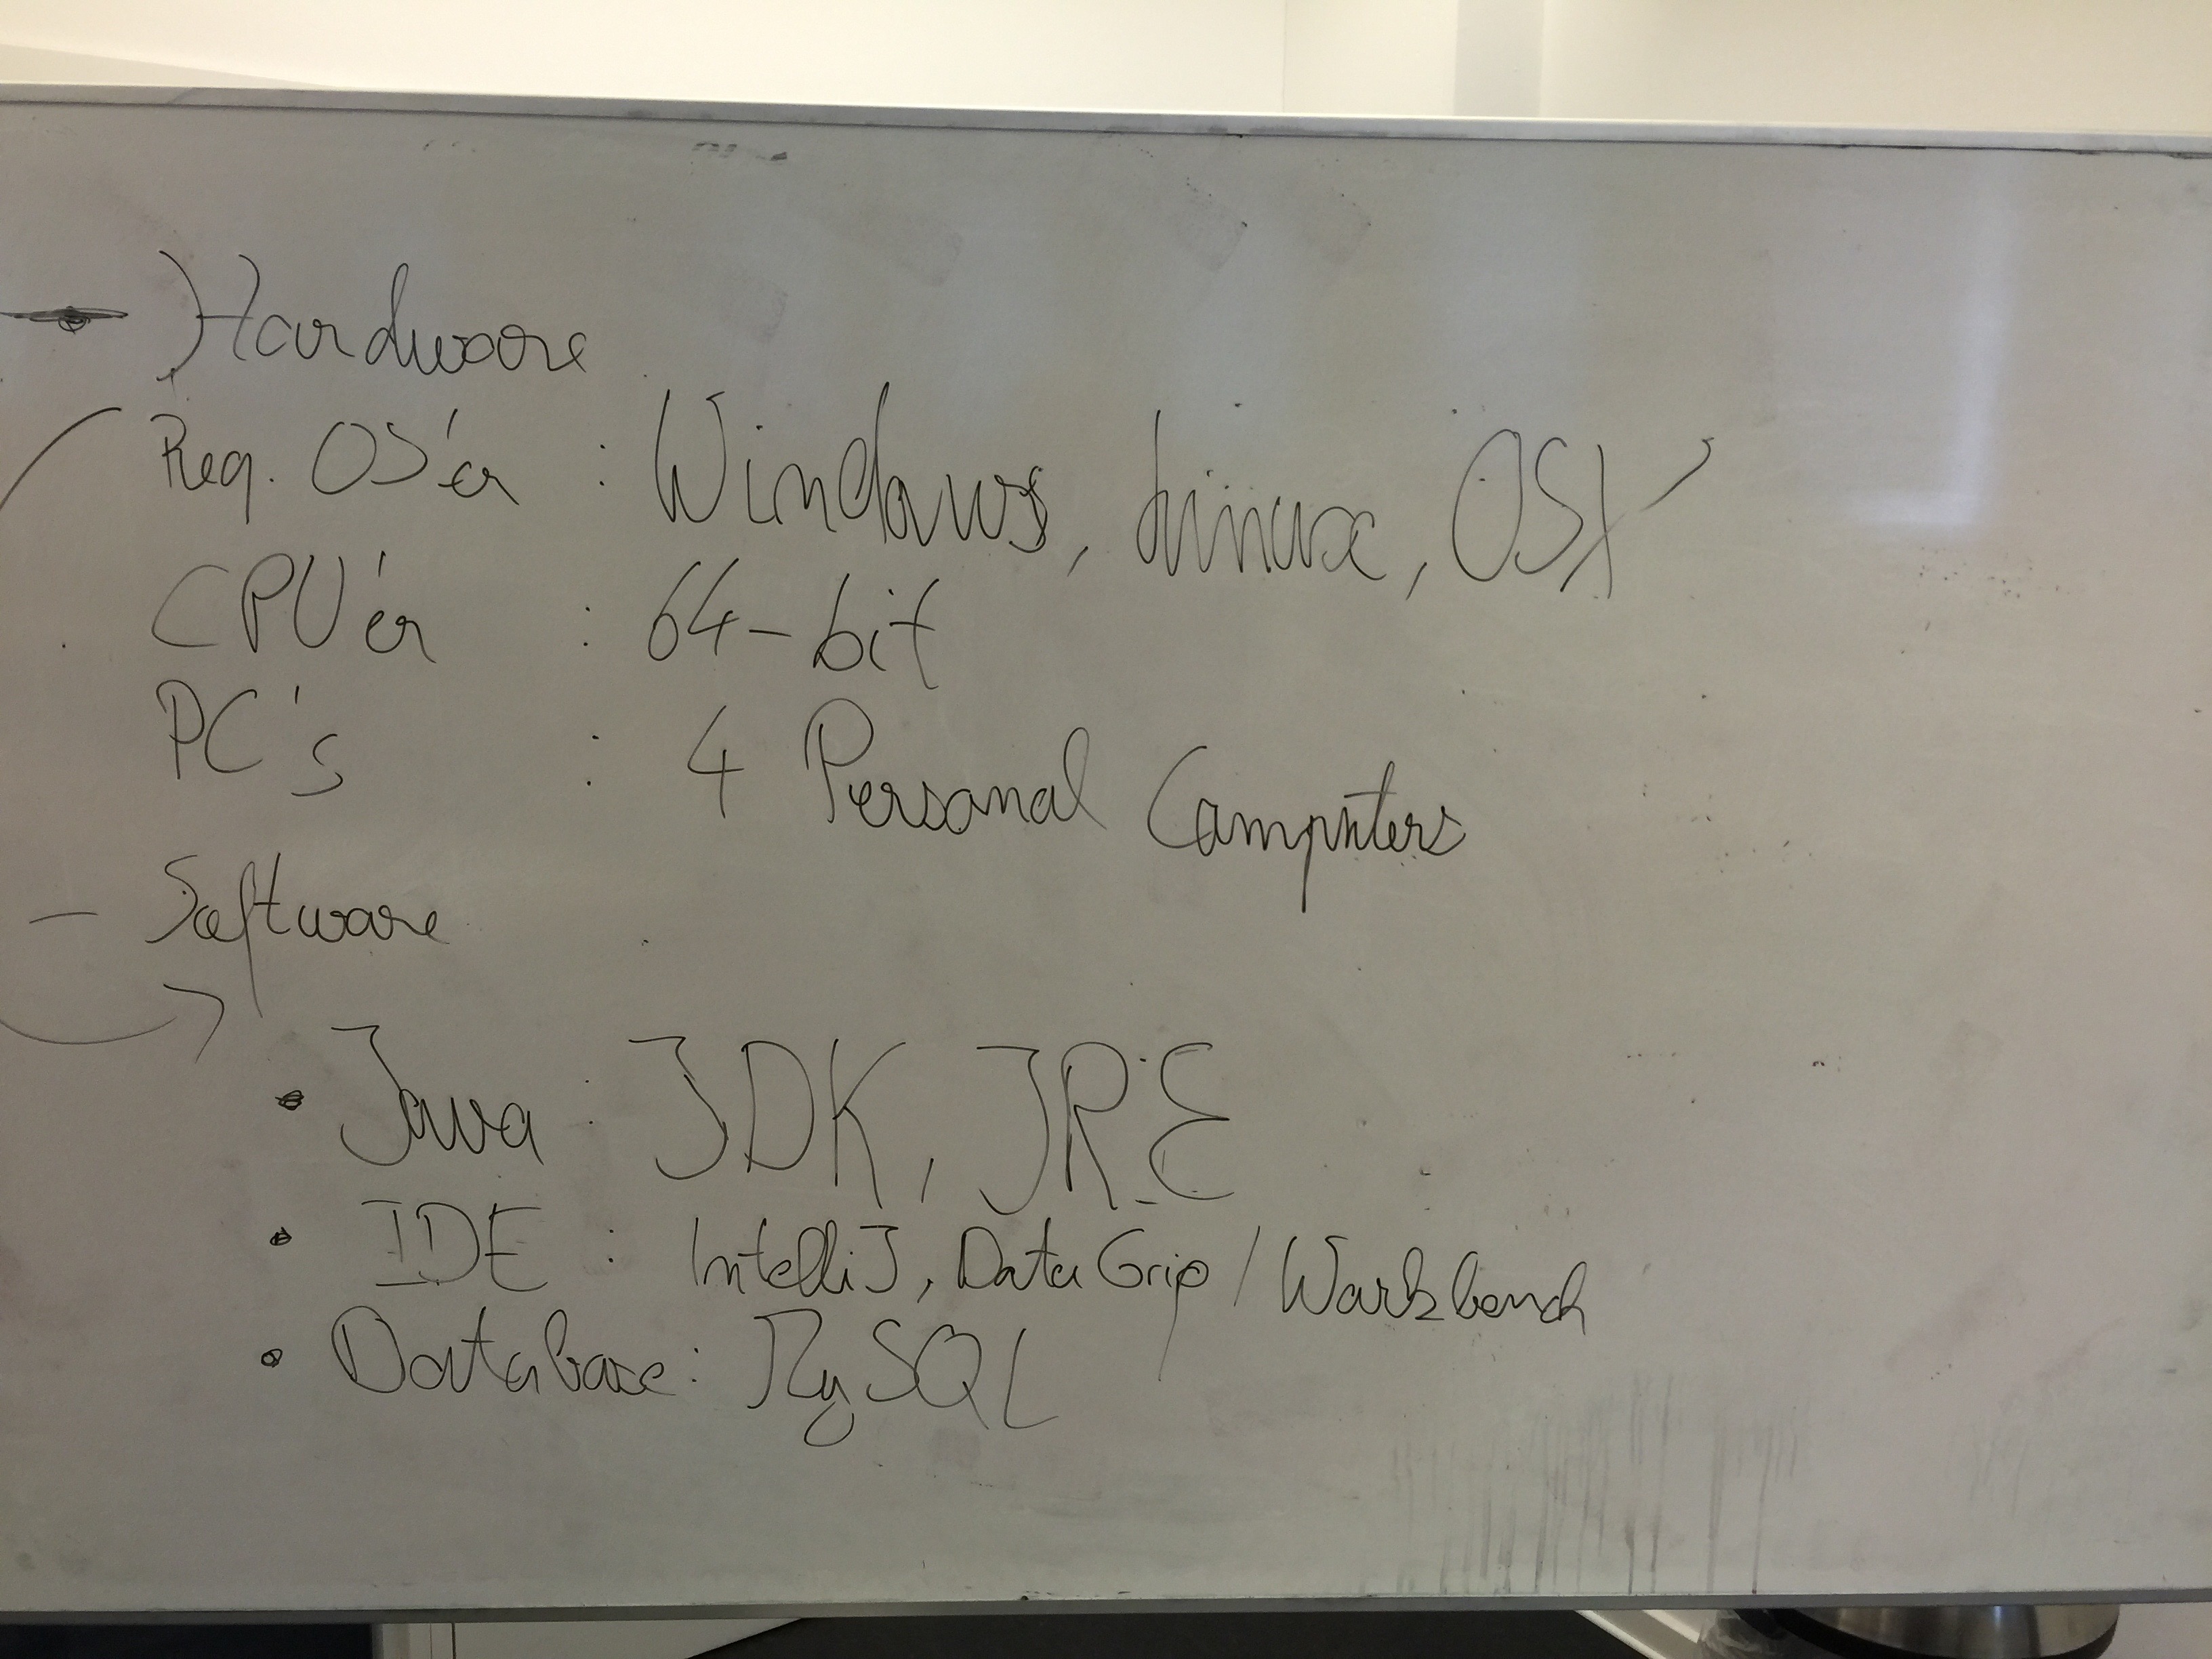 - Hardware
Req. OS'er : Windows, Linux, OSX
CPU'er : 64-bit
PC's : 4 Personal Computers
- Software
• Java : JDK, JRE
• IDE : IntelliJ, DataGrip / Workbench
• Database: MySQL